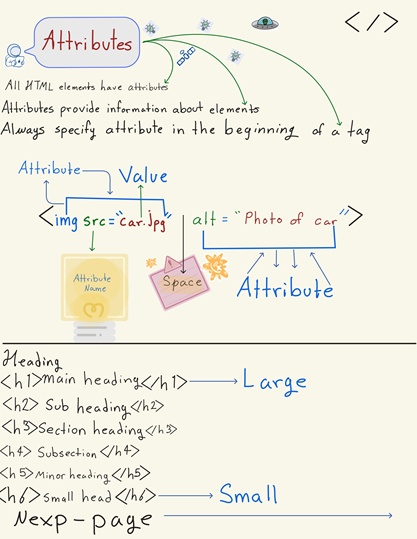 </>
Attributes
All HTML elements have attributes
Attributes provide information about elements
Always specify attribute in the beginning of a tag
Attribute
Value
<img src="car.jpg" alt = "Photo of car">
Attribute
Name
Space
Attribute
Heading
<h1>Main heading</h1> Large
<h2> Sub heading</h2>
<h3>Section heading</h3>
<h4> Subsection </h4>
<h5>Minor heading</h5>
<h6> Small head </h6> Small
Nexp-page